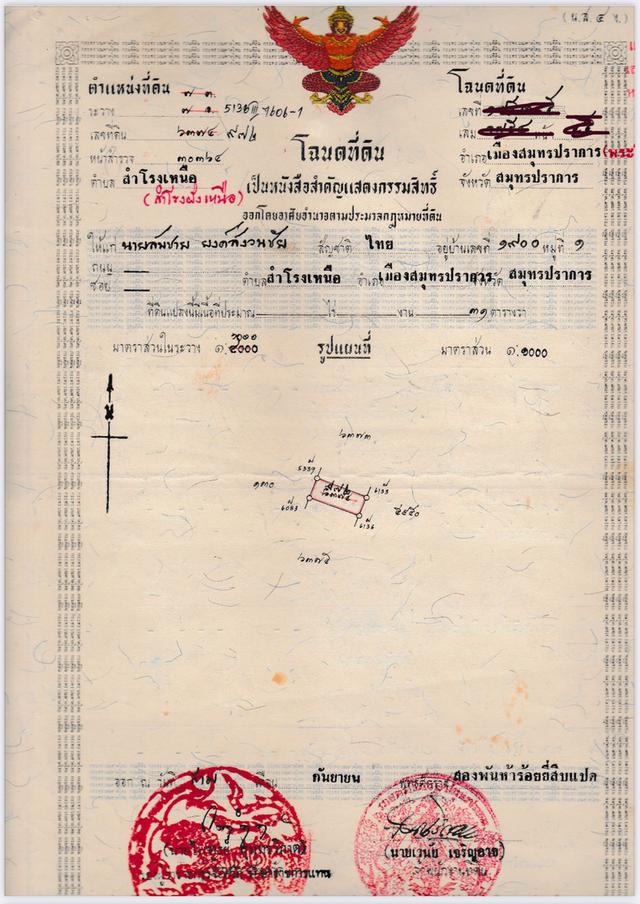 (น.ส. ๔ ง.)
ตำแหน่งที่ดิน
โฉนดที่ดิน
ระวาง 5136 III 7606-1
เลขที่
เลขที่ดิน ๖๓๗๔ ๙๗๒
เล่ม หน้า
หน้าสำรวจ ๓๐๓๖๔
โฉนดที่ดิน
อำเภอ เมืองสมุทรปราการ (พระ
ตำบล สำโรงเหนือ
(สำโรงฝั่งเหนือ)
เป็นหนังสือสำคัญแสดงกรรมสิทธิ์
จังหวัด สมุทรปราการ
ออกโดยอาศัยอำนาจตามประมวลกฎหมายที่ดิน
ให้แก่ นายสมชาย สัญชาติ ไทย อยู่บ้านเลขที่ ๑๙๐๐ หมู่ที่ ๑
ถนน
ซอย ตำบล สำโรงเหนือ อำเภอ เมืองสมุทรปราการ จังหวัด สมุทรปราการ
ที่ดินแปลงนี้มีเนื้อที่ประมาณ ไร่ งาน ๓๑ ตารางวา
มาตราส่วนในระวาง ๑: รูปแผนที่ มาตราส่วน ๑:๑๐๐๐
๖๓๗๓
5337
๑๓๐ ๙๗๒ 6133
๖๓๗๔
6083 ๔๕๔๐
6136
๖๓๗๕
ออก ณ วันที่ สาม เดือน กันยายน สองพันห้าร้อยยี่สิบแปด
(นายเวนัย เจริญอาจ)
เจ้าพนักงานที่ดิน